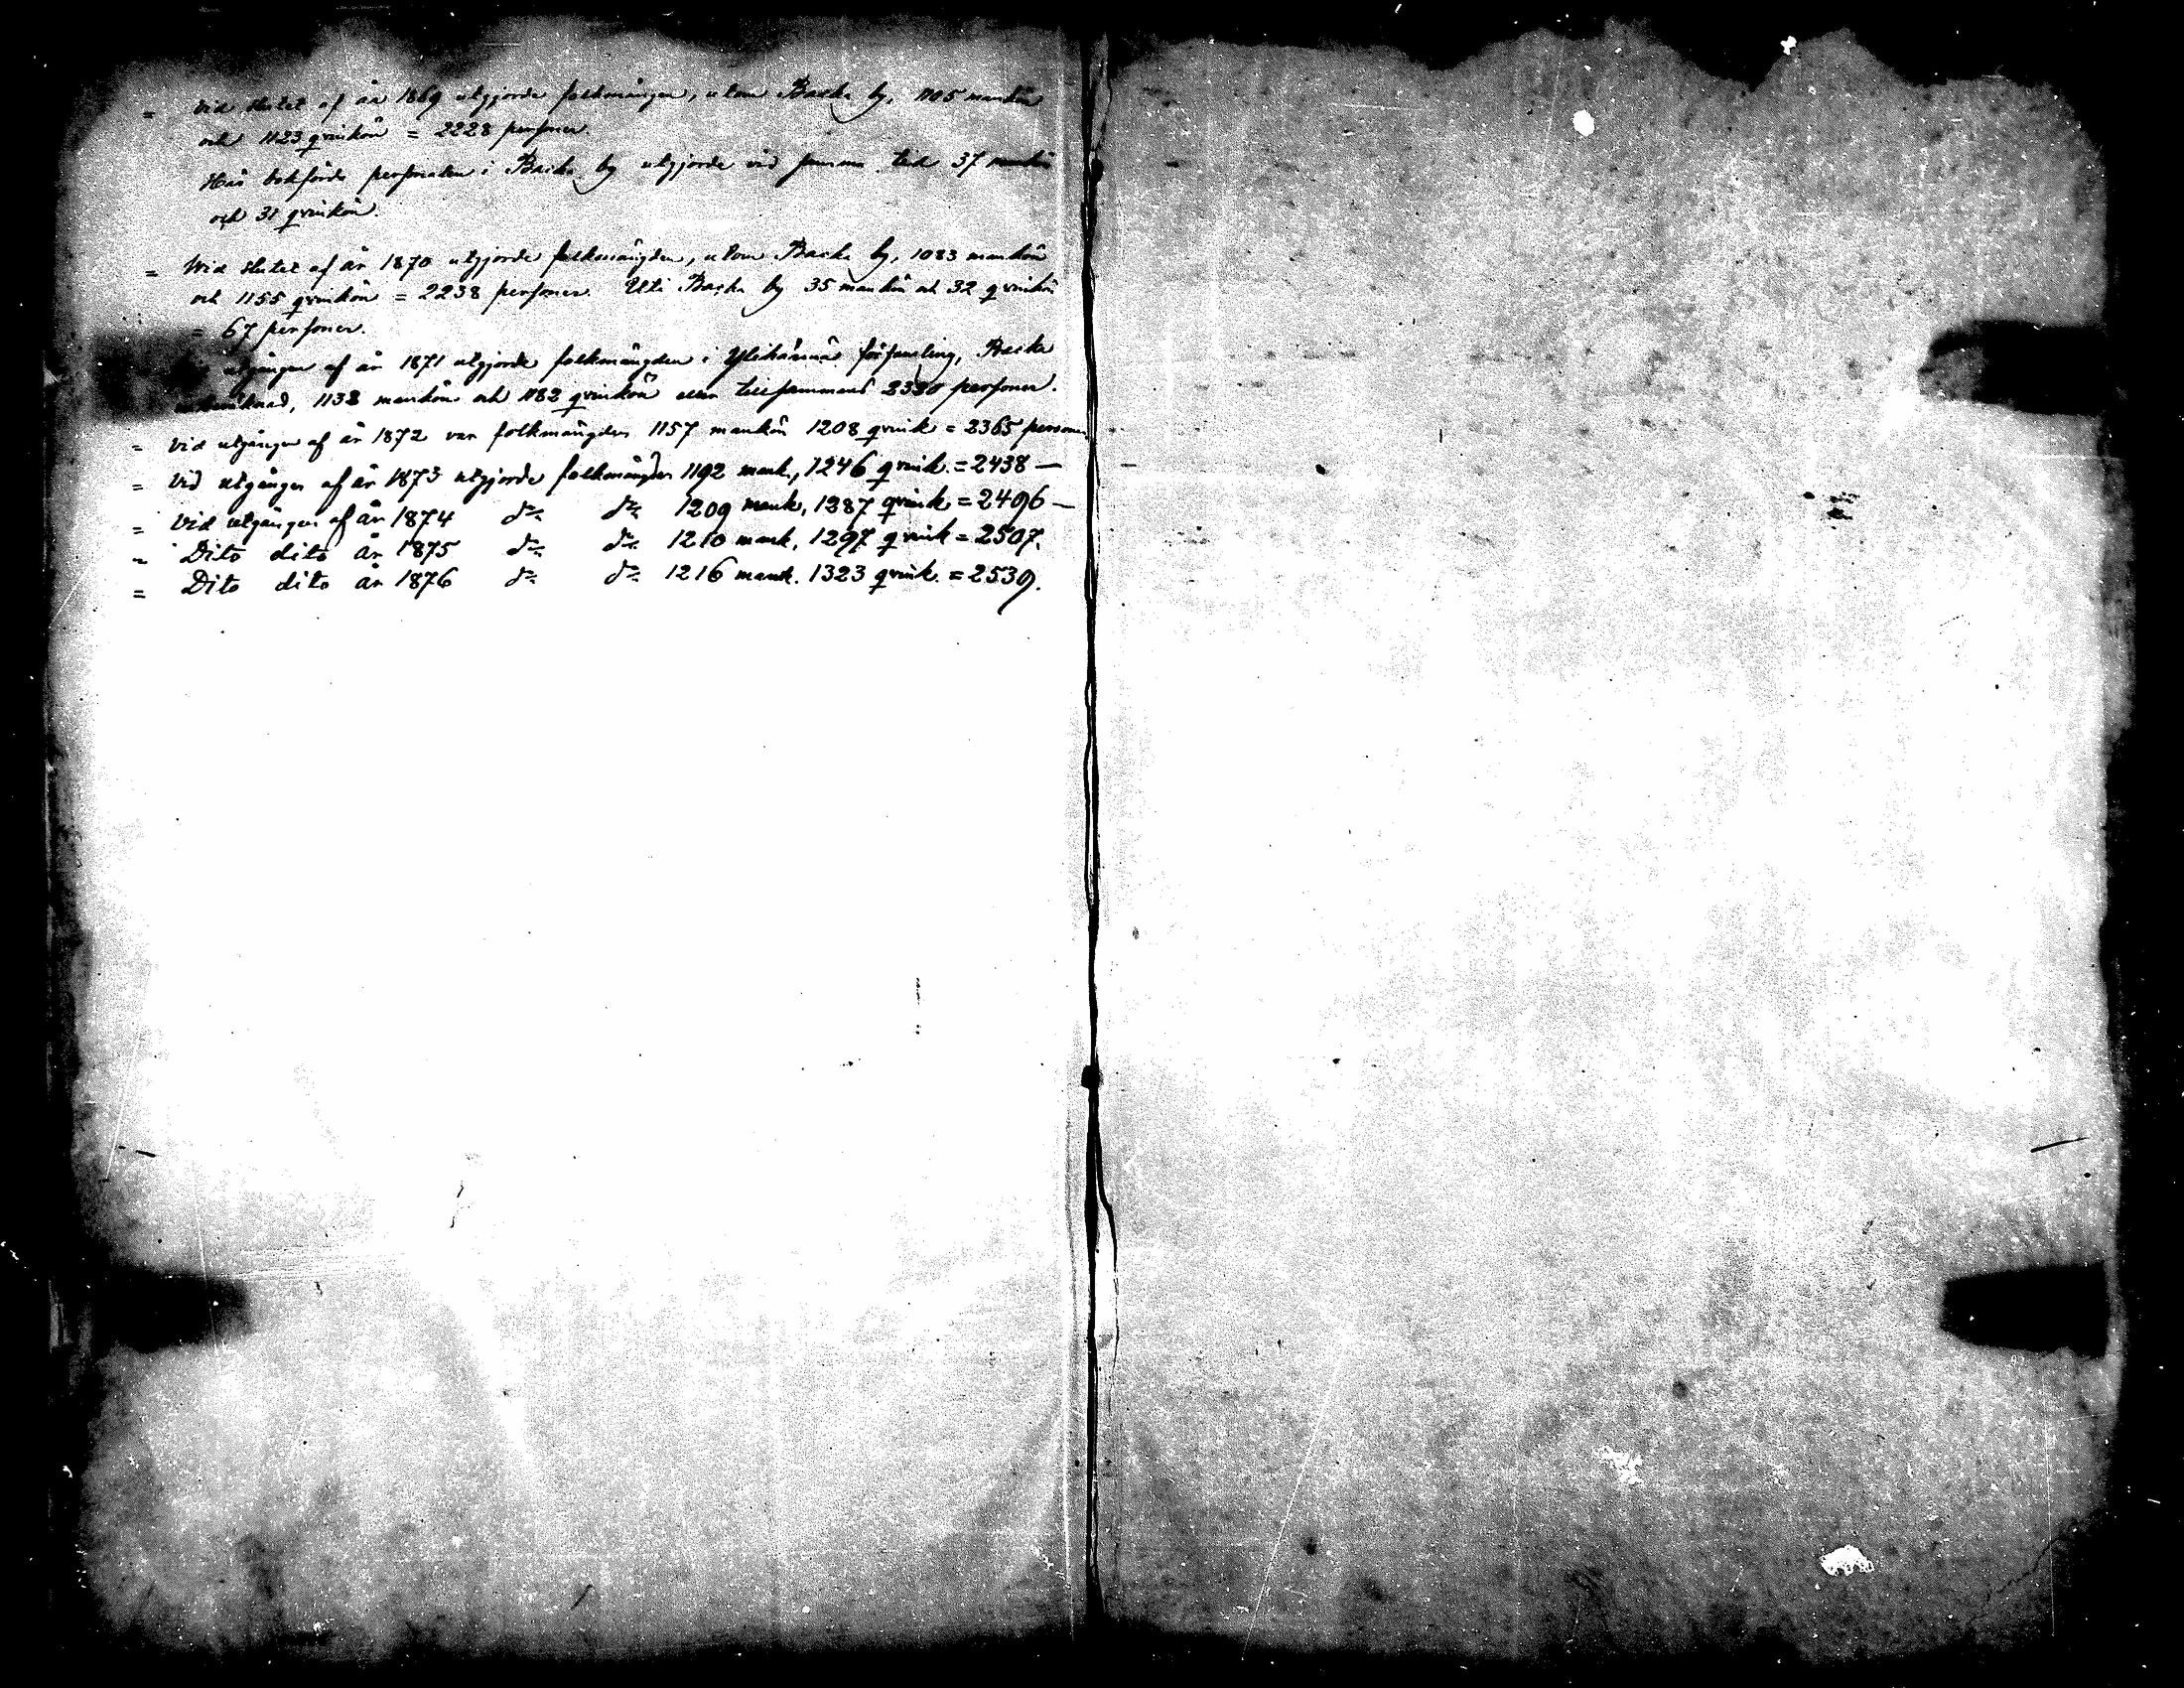 = Vid slutet af år 1869 utgjorde folkmängden, utom Backa by, 1105 mankön
och 1123 qvinkön = 2228 personer.
Här bokförde personalen i Backa by utgjorde vid samma tid 37 mankön
och 31 qvinkön.
= Vid slutet af år 1870 utgjorde folkmängden, utom Backa by, 1083 mankön
och 1155 qvinkön = 2238 personer. Uti Backa by 35 mankön och 32 qvinkön
= 67 personer.
utgången af år 1871 utgjorde folkmängden i Ylihärmä församling, Backa
1138 mankön och 1182 qvinkön eller tillsammans personer.
= Vid utgången af år 1872 var folkmängden 1157 mankön 1208 qvink = 2365 personer
= Vid utgången af år 1873 utgjorde folkmängden 1192 mank, 1246 qvink. = 2438 —
= Vid utgången af år 1874 d:o d:o 1209 mank, 1287 qvink = 2496 —
= Dito dito år 1875 d:o d:o 1210 mank, 1297 qvink = 2507.
= Dito dito år 1876 d:o d:o 1216 mank. 1323 qvink. = 2539.